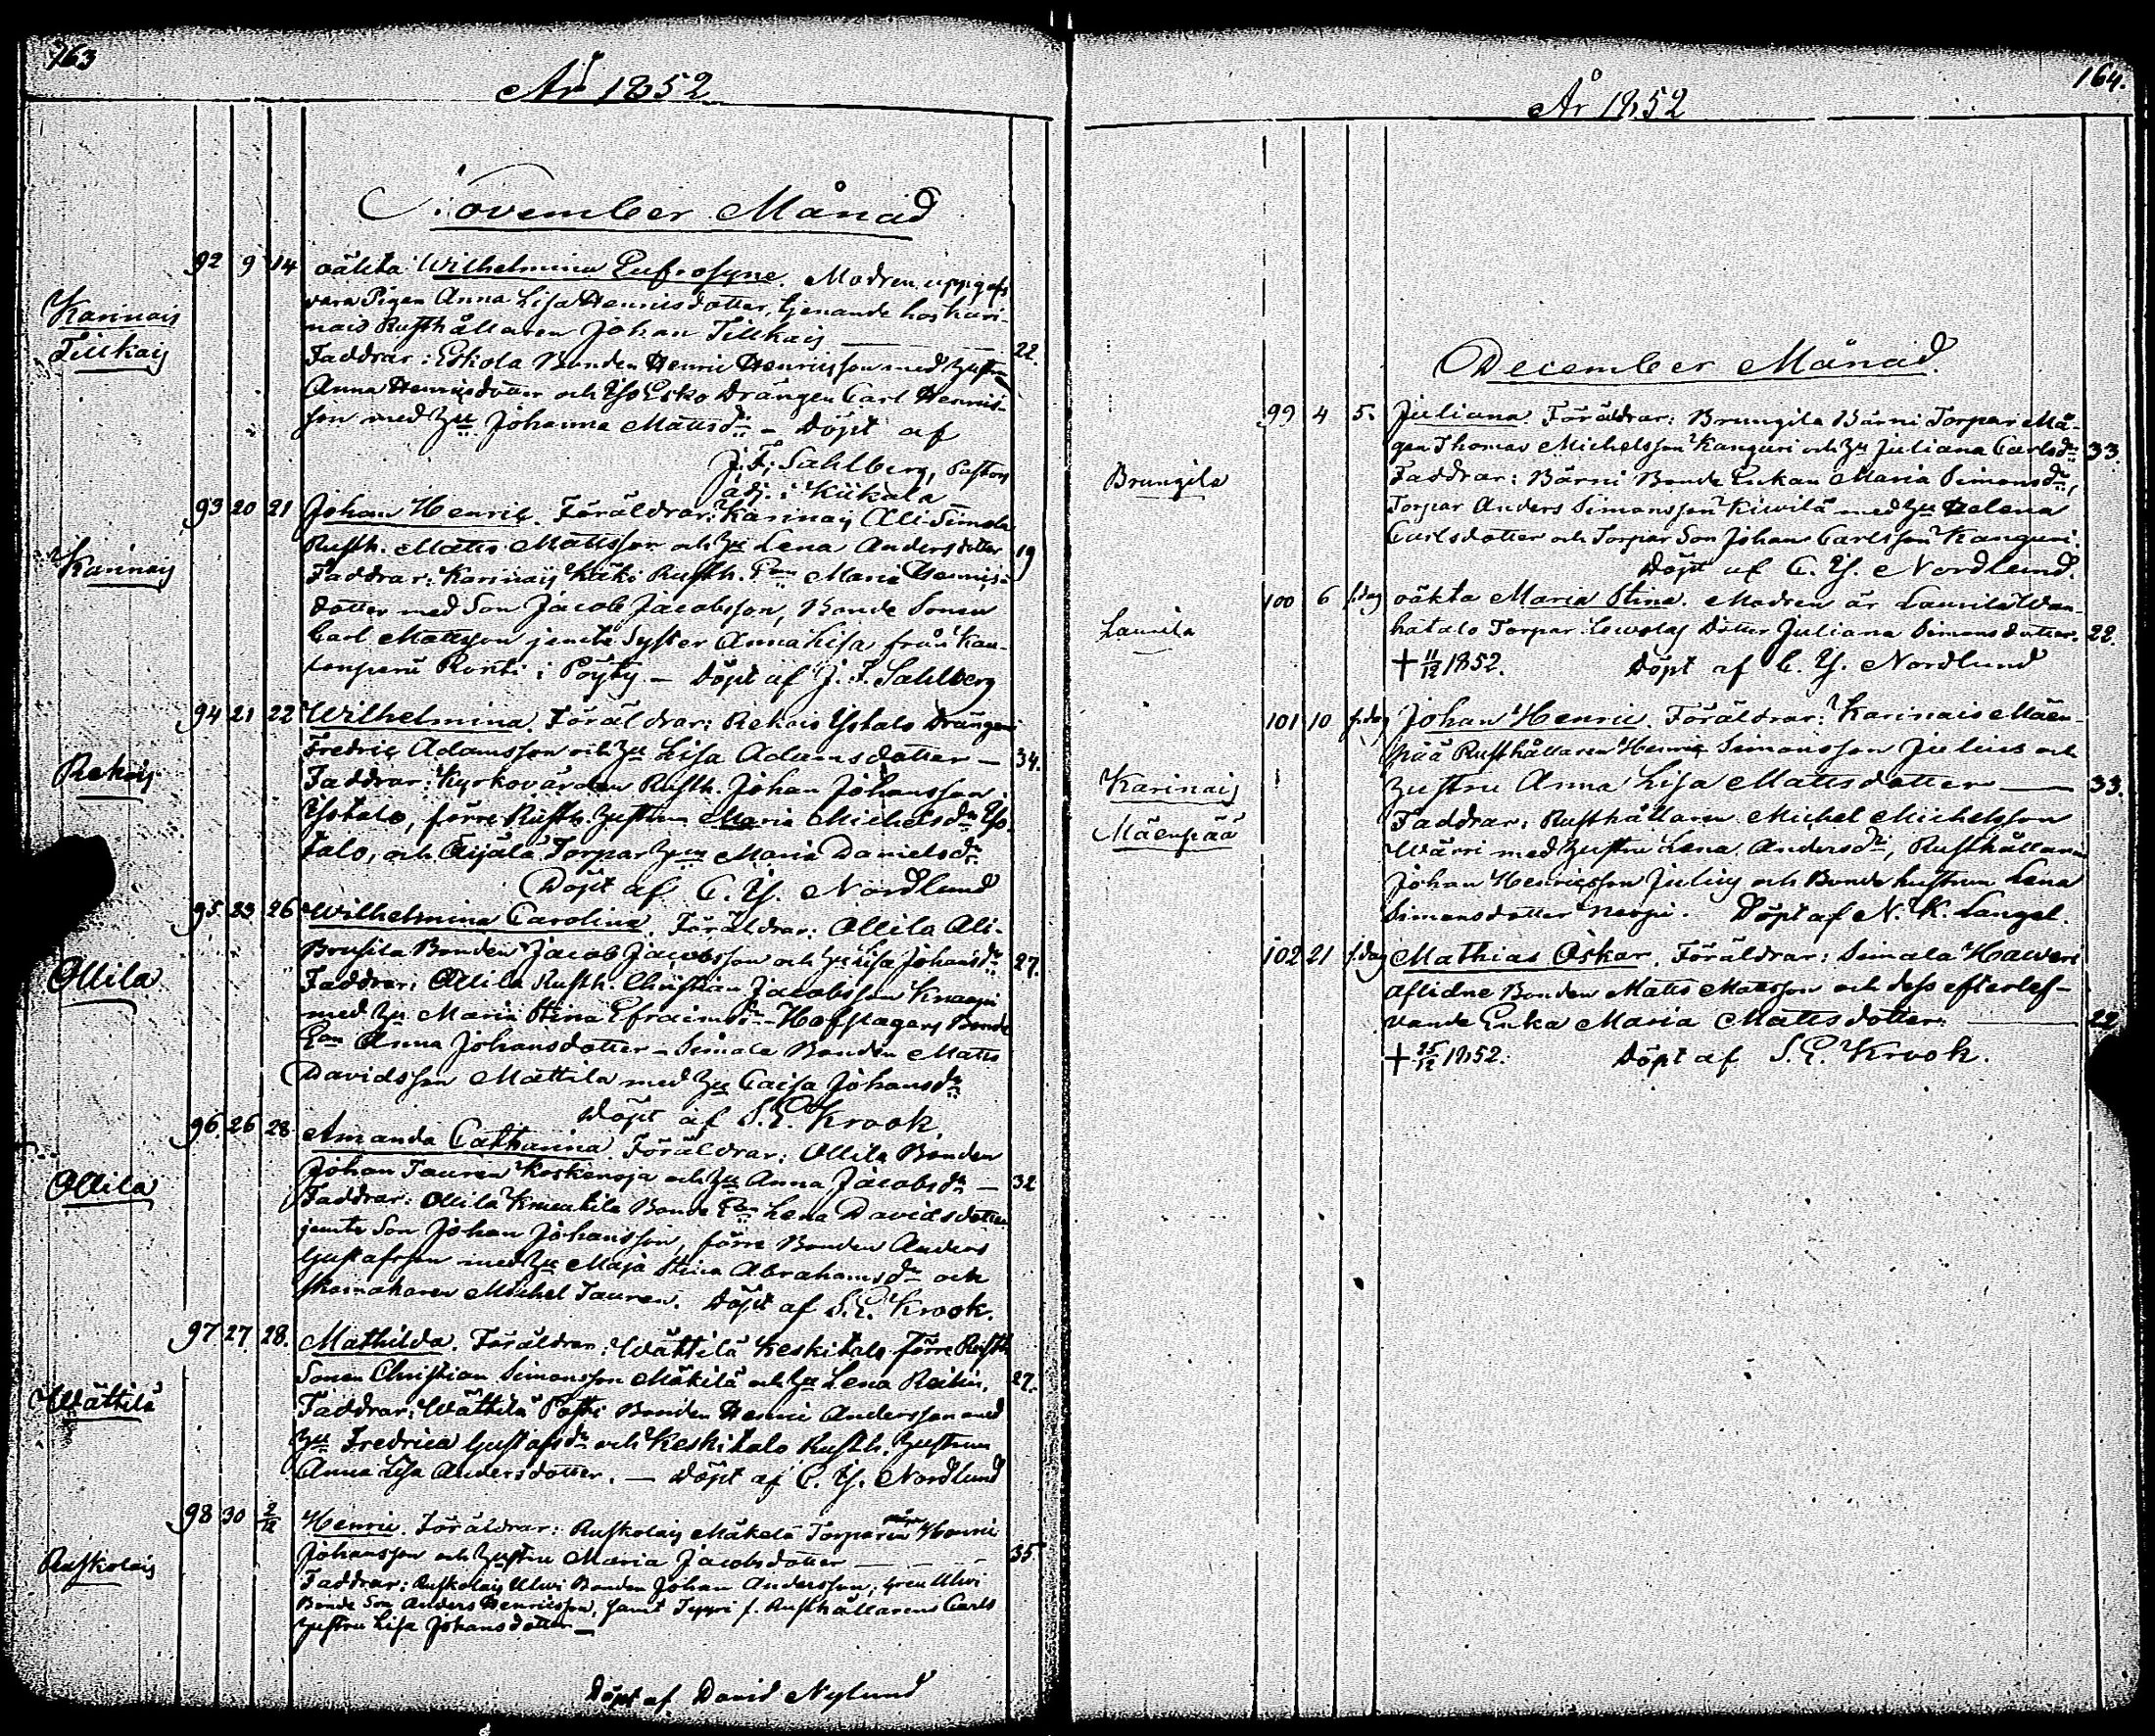 163
År 1852
November Månad
92 9 14 oäkta Wilhelmina Eufrosyne. Modren uppgafs
Karinais
Tillkais
vara Pigan Anna Lisa Henricsdotter, tjenande hos Kari-
nais Rusthållaren Johan Tillkais — 22.
Faddrar: Eskola Bonden Henric Henricsson med hustru
Anna Henricsdotter och Yso Esko Drängen Carl Henrics-
son med Hu Johanna Mattsdr – Döpt af
J. F. Sahlberg, Pastors
adj. i Kiikala
93 20 21 Johan Henric. Föräldrar: Karinais Ali-Simola
Karinais
Rusth. Matts Mattsson och Hu Lena Andersdotter 19
Faddrar: Karinais Käki Rusth. Enn Maria Henrics-
dotter med Son Jacob Jacobsson, Bonde Sonen
Carl Mattsson jemte Syster Anna Lisa från Kan-
tenperä Ronti i Pöyty – Döpt af J. F. Sahlberg
94 21 22 Wilhelmina. Föräldrar: Rekois Ystalo Drängen
Rekois
Fredric Adamsson och Hu Lisa Adamsdotter — 34.
Faddrar: Kyrkovärden Rusth. Johan Johansson
Ystalo, förre Rusth. Hustrun Maria Michelsdr Ys-
talo, och Äijälä Torpar Hun Maria Danielsdr
Döpt af C. Y. Nordlund
95 23 26 Wilhelmina Carolina. Föräldrar: Ollila Ali-
Ollila
Brusila Bonden Jacob Jacobsson och Hu Lisa Johansdr 27.
Faddrar: Ollila Rusth. Christian Jacobsson Knaapi
med Hu Maria Stina Efraimsdr – Hofslagars Bonde
Enn Anna Johansdotter – Simala Bonden Matts
Davidsson Mattila med Hu Caisa Johansdr
Döpt af S. E. Krook.
96. 26 28 Amanda Catharina. Föräldrar: Ollila Bonden
Ollila
Johan Tauren Koskenoja och Hu Anna Jacobsdr — 32
Faddrar: Ollila Knuutila Bonde Enn Lena Davidsdotter
jemte Son Johan Johansson, förre Bonden Anders
Gustafsson med Hu Maja Stina Abrahamsdr och
Skomakaren Michel Tauren. Döpt af S. E. Krook.
97. 27 28. Mathilda. Föräldrar: Wättilä Keskitalo förre Rusth
Wättilä
Sonen Christian Simonsson Mäkilä och Hu Lena Raitin, 27.
Faddrar: Wättilä Posti Bonden Henric Andersson med
Hu Fredrica Gustafsdr och Keskitalo Rusth. Hustrun
Anna Lisa Andersdotter. — Döpt af C. Y. Nordlund
98 30 2/12 Henric. Föräldrar: Ruskolais Mäkelä Torparen Henric
Ruskolais
Johansson och Hustru Maria Jacobsdotter — 35
Faddrar: Ruskolais Ulwi Bonden Johan Andersson, Ulwi
Bonde Son Anders Henricsson, samt Teppri f. Rusthållarens Carls
Hustru Lisa Johansdotter —
Döpt af David Nylund
164.
År 1852
December Månad.
99 4 5. Juliana. Föräldrar: Brungila Bärni Torpar Må-
gen Thomas Michelsson Kanguri och Hu Juliana Carlsdr 33.
Brungila
Faddrar: Bärni Bonde Enkan Maria Simonsdr,
Torpar Anders Simonsson Kiwilä med Hu Helena
Carlsdotter och Torpar Son Johan Carlsson Kanguri.
Döpt af C. Y. Nordlund.
100 6 s. dag oäkta Maria Stina. Modren är Laurila Wan-
Laurila
hatalo Torpar Dotter Juliana Simonsdotter. 22.
† 11/12 1852. Döpt af C. Y. Nordlund
101 10 s. dag Johan Henric. Föräldrar: Karinais Mäen-
pää Rusthållaren Henric Simonsson Julius och
Karinais
Mäenpää
Hustru Anna Lisa Mattsdotter — 33.
Faddrar: Rusthållaren Michel Michelsson
Wärri med Hustru Lena Andersdr, Rusthållaren
Johan Henricsson Julius och Bonde hustrun Lena
Simonsdotter Nerpi. Döpt af N. K. Langel.
102 21 s. dag Mathias Oskar. Föräldrar: Simala Haweri
aflidne Bonden Matts Mattsson och dess efterlef-
vande Enka Maria Mattsdotter. — 22
† 25/12 1852. Döpt af S. E. Krook.